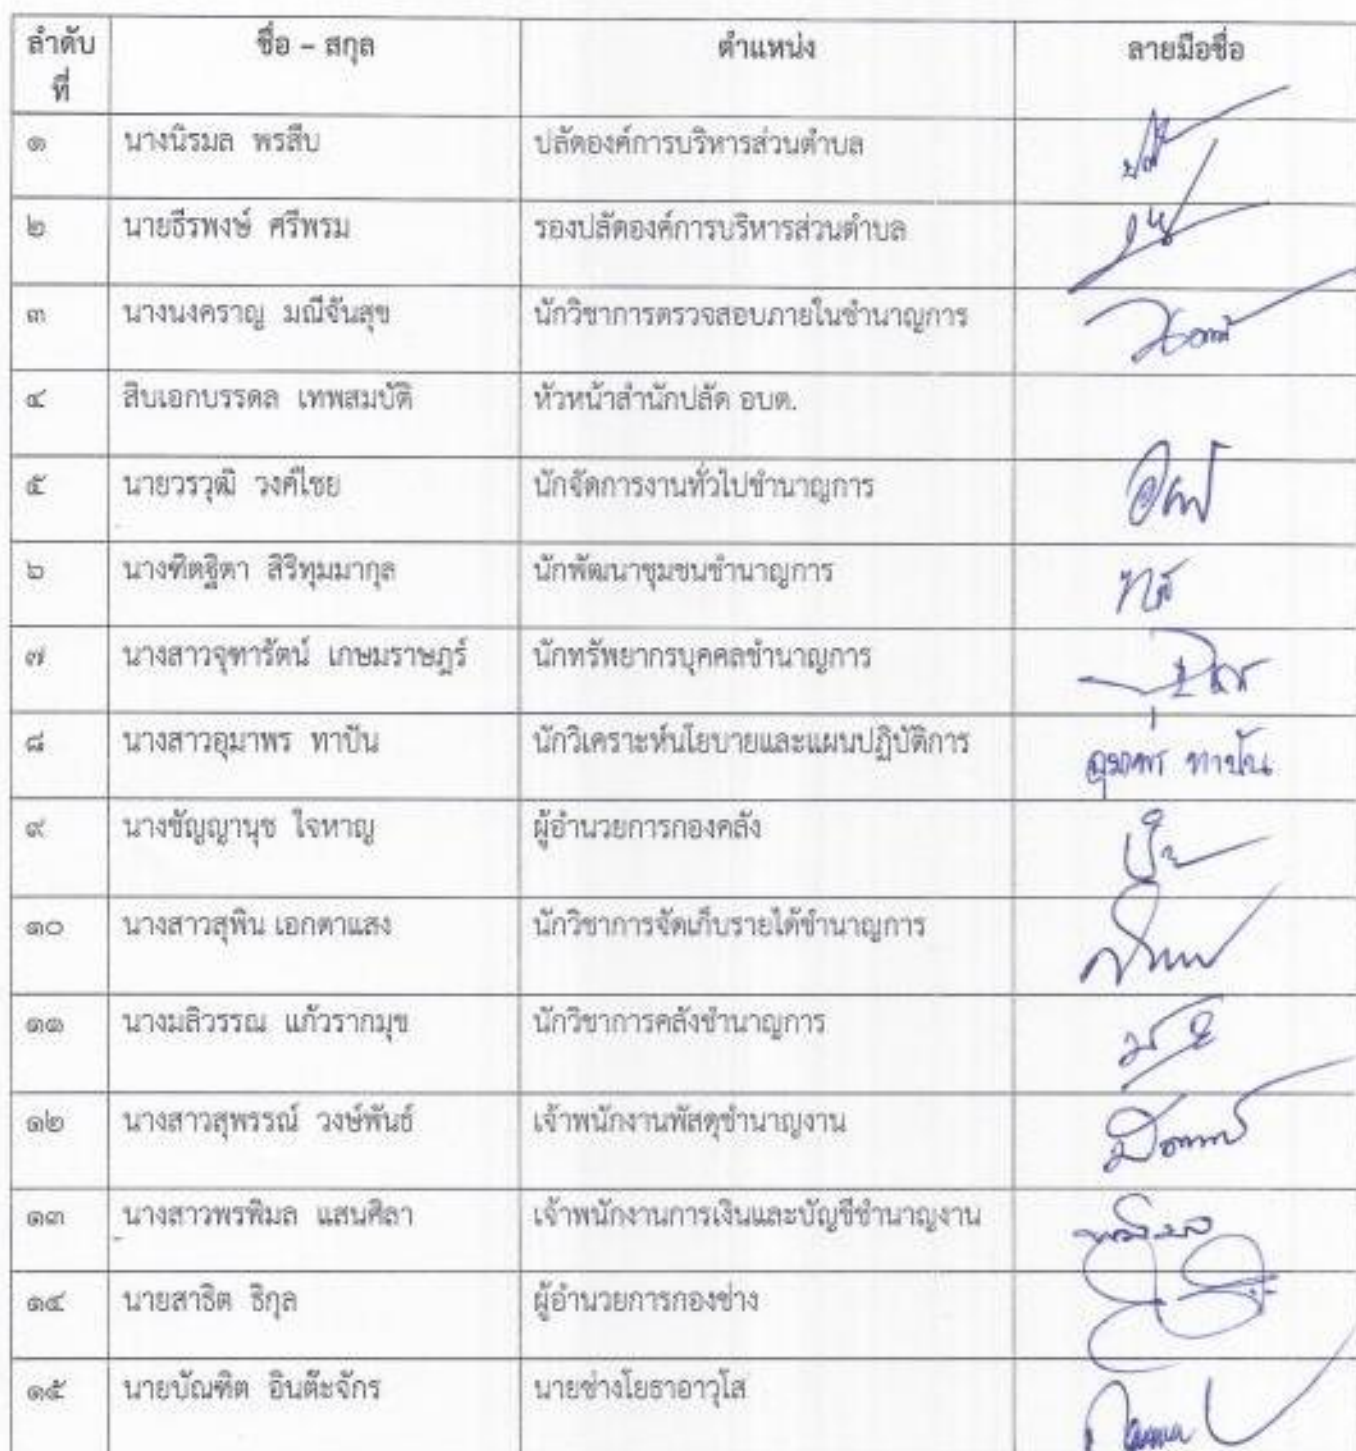 ลำดับที่ ชื่อ – สกุล ตำแหน่ง ลายมือชื่อ
๑ นางนิรมล พรสืบ ปลัดองค์การบริหารส่วนตำบล
๒ นายธีรพงษ์ ศรีพรม รองปลัดองค์การบริหารส่วนตำบล
๓ นางนงคราญ มณีจันสุข นักวิชาการตรวจสอบภายในชำนาญการ
๔ สิบเอกบรรดล เทพสมบัติ หัวหน้าสำนักปลัด อบต.
๕ นายวรวุฒิ วงศ์ไชย นักจัดการงานทั่วไปชำนาญการ
๖ นางฑิตฐิตา สิริทุมมากุล นักพัฒนาชุมชนชำนาญการ
๗ นางสาวจุฑารัตน์ เกษมราษฎร์ นักทรัพยากรบุคคลชำนาญการ
๘ นางสาวอุมาพร ทาปัน นักวิเคราะห์นโยบายและแผนปฏิบัติการ อุมาพร ทาปัน
๙ นางชัญญานุช ใจหาญ ผู้อำนวยการกองคลัง
๑๐ นางสาวสุพิน เอกตาแสง นักวิชาการจัดเก็บรายได้ชำนาญการ
๑๑ นางมลิวรรณ แก้วรากมุข นักวิชาการคลังชำนาญการ
๑๒ นางสาวสุพรรณ์ วงษ์พันธ์ เจ้าพนักงานพัสดุชำนาญงาน
๑๓ นางสาวพรพิมล แสนศิลา เจ้าพนักงานการเงินและบัญชีชำนาญงาน
๑๔ นายสาธิต ธิกุล ผู้อำนวยการกองช่าง
๑๕ นายบัณฑิต อินต๊ะจักร นายช่างโยธาอาวุโส